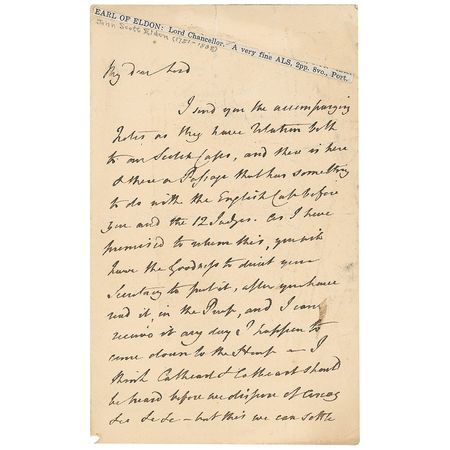 EARL OF ELDON: Lord Chancellor. A very fine ALS, 2pp. 8vo., Port.
John Scott Eldon (1751-1838)
My dear Lord
I send you the accompanying
Notes as they have relation both
to our Scotch Cases, and there is here
& there a Passage that has something
to do with the English Case before
you and the 12 Judges. As I have
promised to return this, you will
have the Goodness to direct your
Secretary to put it, after you have
read it, in the Post, and I can
receive it any day I happen to
come down to the House — I
think Cathcart & Cathcart should
be heard before we dispose of
&c &c &c — but this we can settle